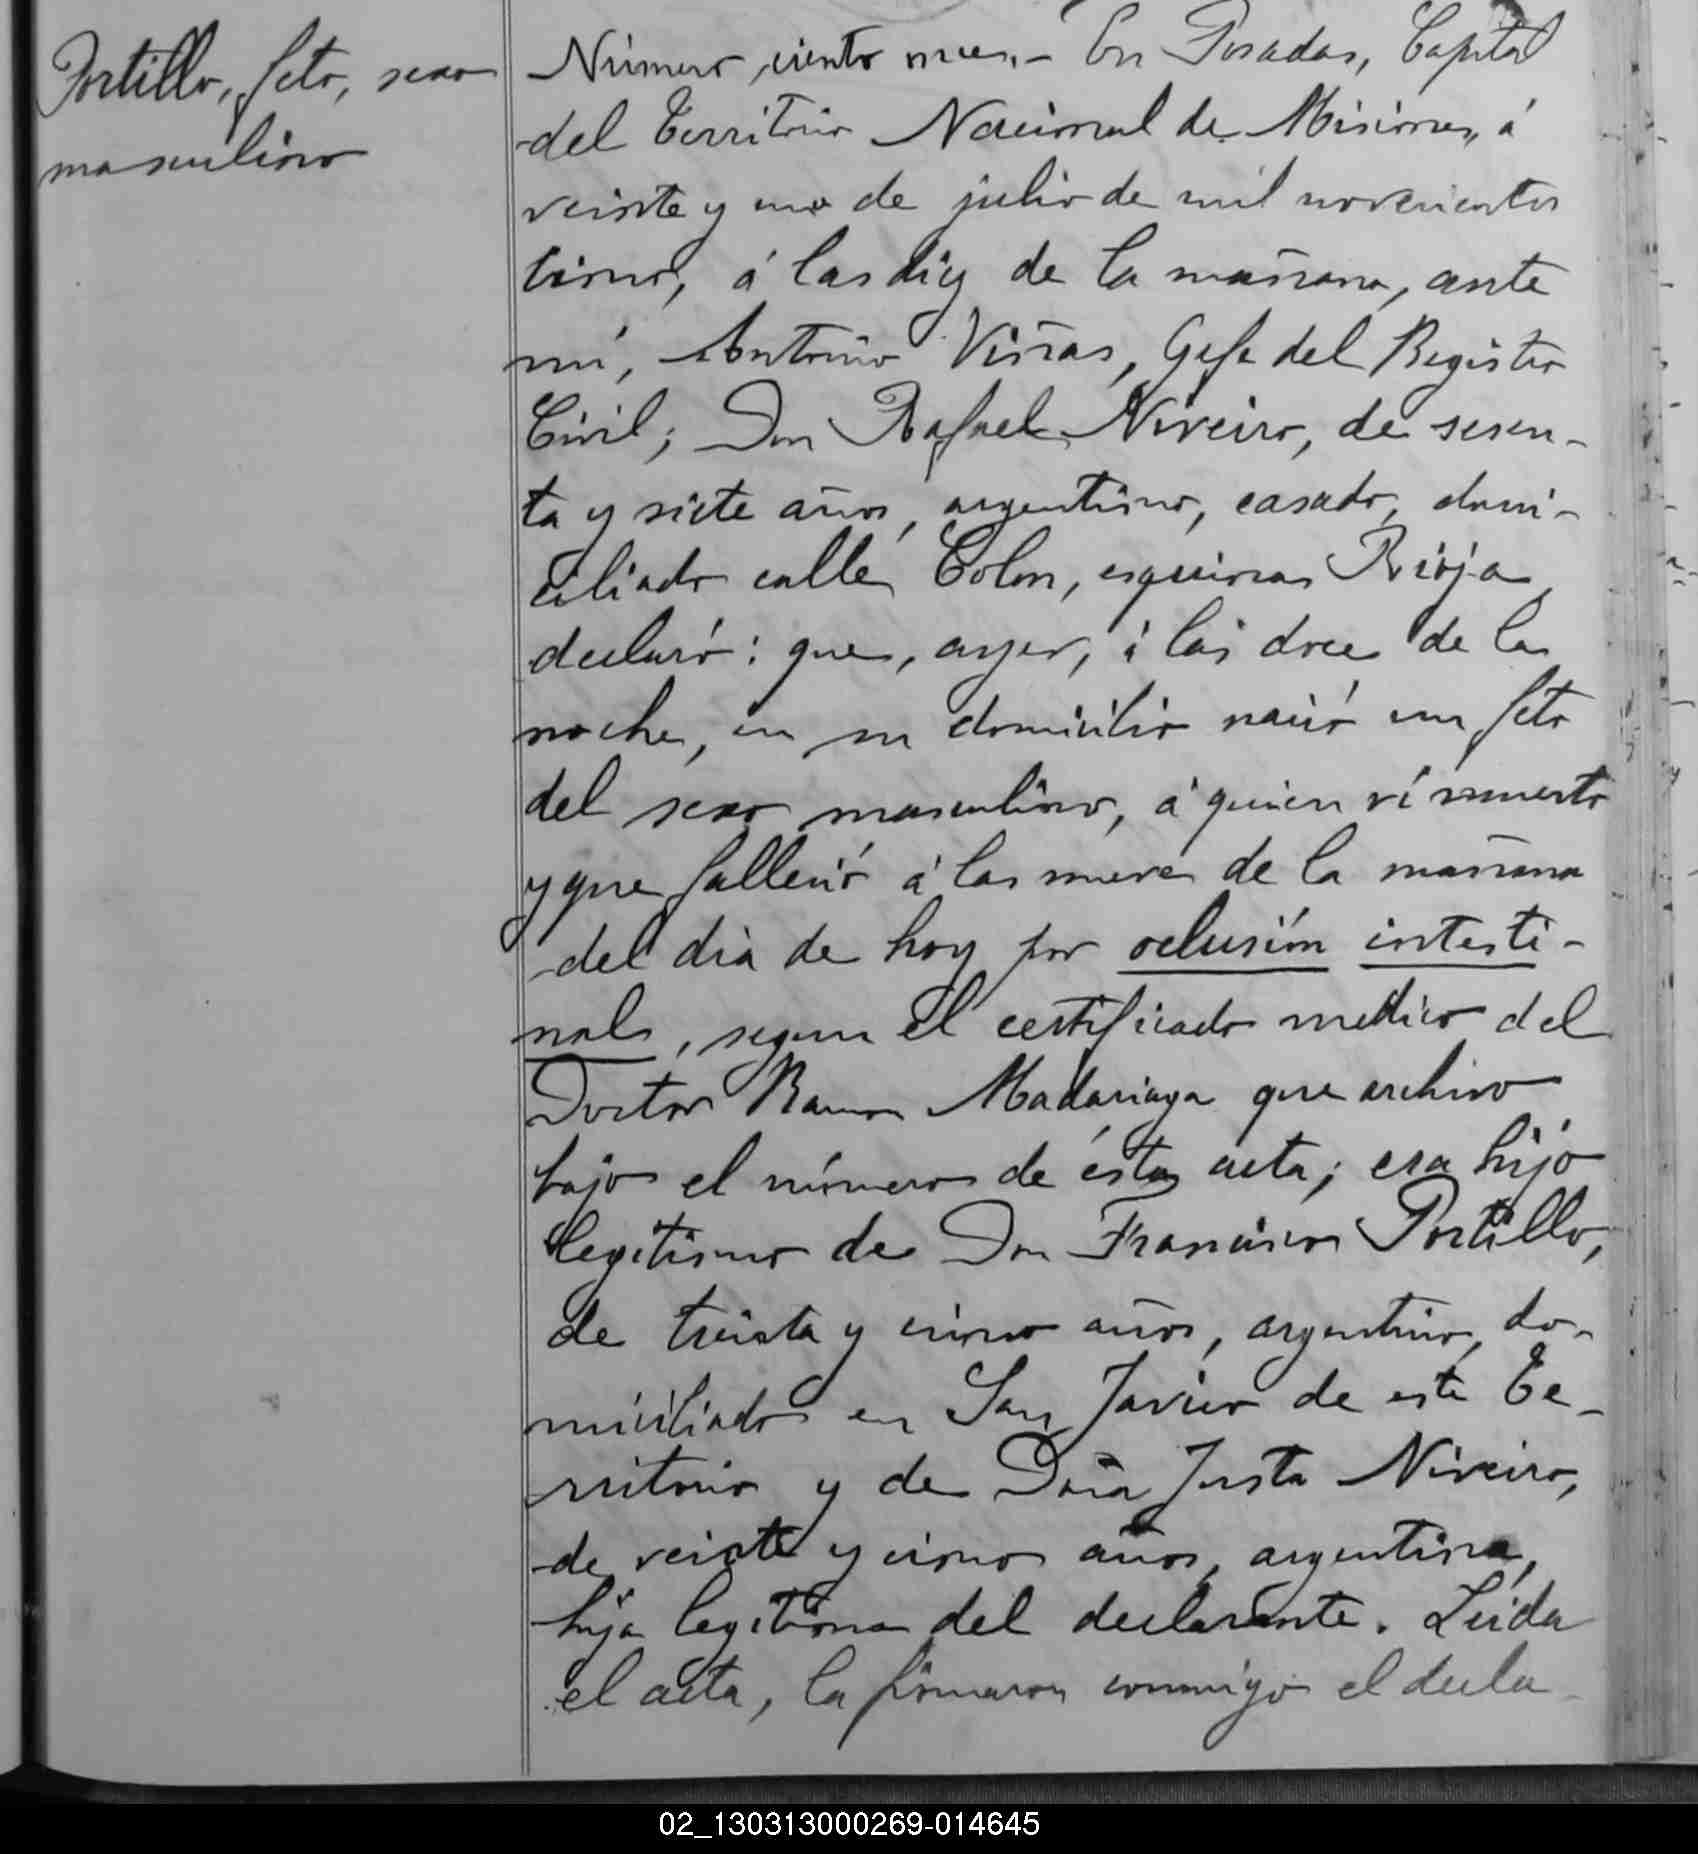 Portillo, feto, sexo
masculino
Número ciento once.- En Posadas, Capital
del Territorio Nacional de Misiones, á
veinte y uno de julio de mil novecientos
cinco, á las diez de la mañana, ante
mí, Antonio Viñas, Gefe del Registro
Civil; Don Rafael Niveiro, de sesen-
ta y siete años, argentino, casado, domi-
ciliado calle Colon, esquina Rioja,
declaró: que, ayer, á las doce de la
noche, en su domicilio nació un feto
del sexo masculino, á quien ví muerto
y que falleció á las nueve de la mañana
del dia de hoy por oclusión intesti-
nal, segun el certificado medico del
Doctor Ramon Madariaga que archivo
bajo el número de ésta acta; era hijo
legitimo de Don Francisco Portillo,
de treinta y cinco años, argentino, do-
miciliado en San Javier de este Te-
rritorio y de Doña Justa Niveiro,
de veinte y cinco años, argentina,
hija legitima del declarante. Leida
el acta, la firmaron conmigo el decla-
02_130313000269-014645